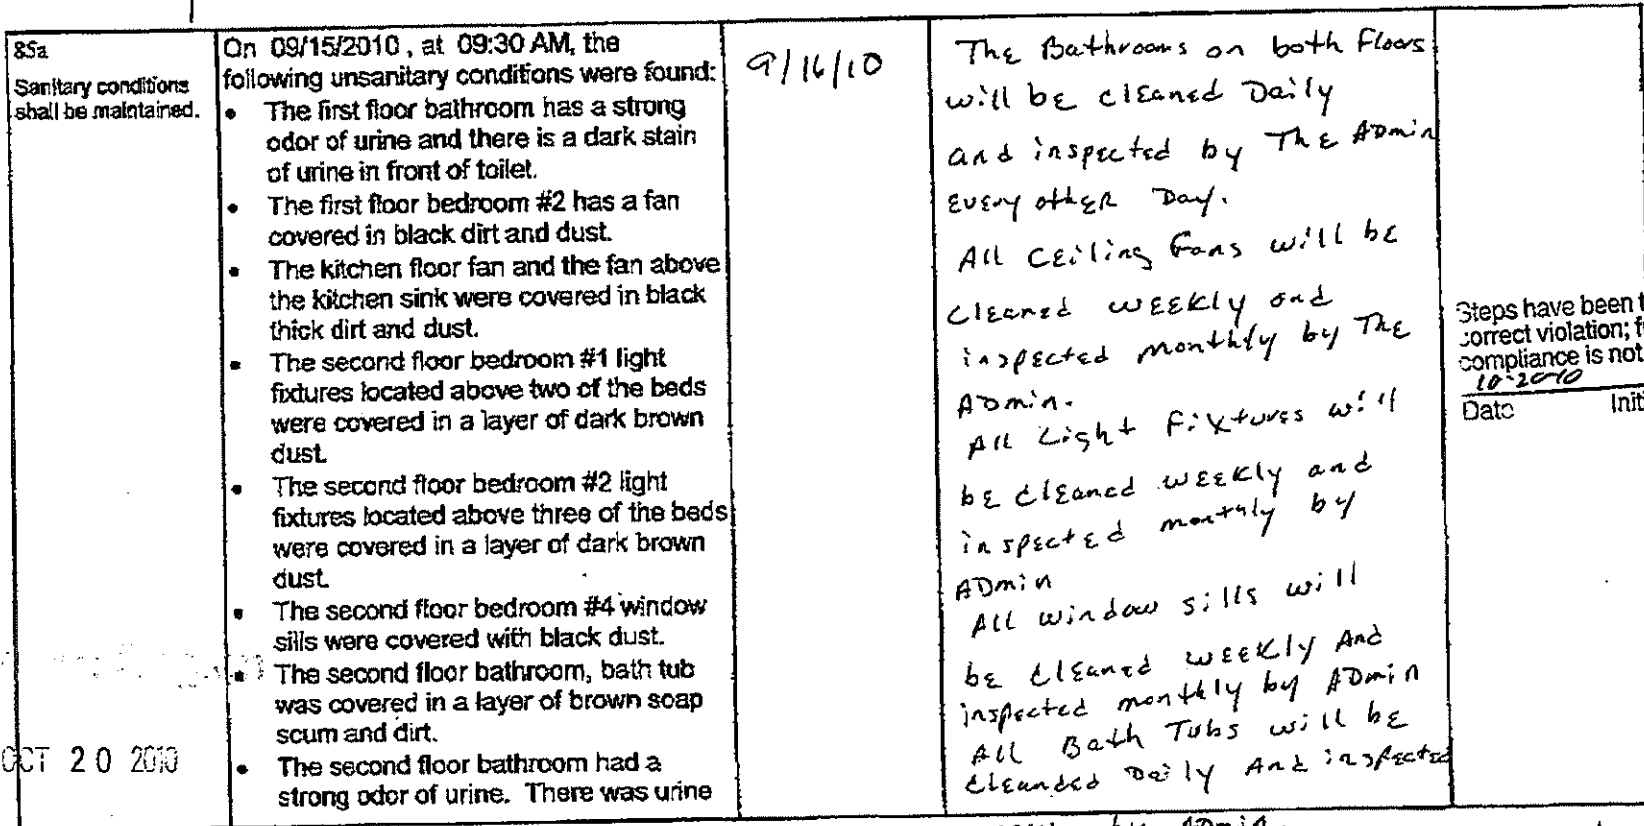 85a
Sanitary conditions
shall be maintained.
OCT 20 2010
On 09/15/2010, at 09:30 AM, the
following unsanitary conditions were found:
• The first floor bathroom has a strong
odor of urine and there is a dark stain
of urine in front of toilet.
• The first floor bedroom #2 has a fan
covered in black dirt and dust.
• The kitchen floor fan and the fan above
the kitchen sink were covered in black
thick dirt and dust.
• The second floor bedroom #1 light
fixtures located above two of the beds
were covered in a layer of dark brown
dust.
• The second floor bedroom #2 light
fixtures located above three of the beds
were covered in a layer of dark brown
dust.
• The second floor bedroom #4 window
sills were covered with black dust.
• The second floor bathroom, bath tub
was covered in a layer of brown soap
scum and dirt.
• The second floor bathroom had a
strong odor of urine. There was urine
9/16/10
The Bathrooms on both Floors
will be cleaned Daily
and inspected by The ADmin
every other Day.
All Ceiling Fans will be
cleaned weekly and
inspected monthly by The
ADmin.
All Light Fixtures will
be cleaned weekly and
inspected monthly by
ADmin
All window sills will
be cleaned weekly And
inspected monthly by ADmin
All Bath Tubs will be
cleanded Daily And inspected
by ADmin
Steps have been t
correct violation; f
compliance is not
10-20-10
Date Init